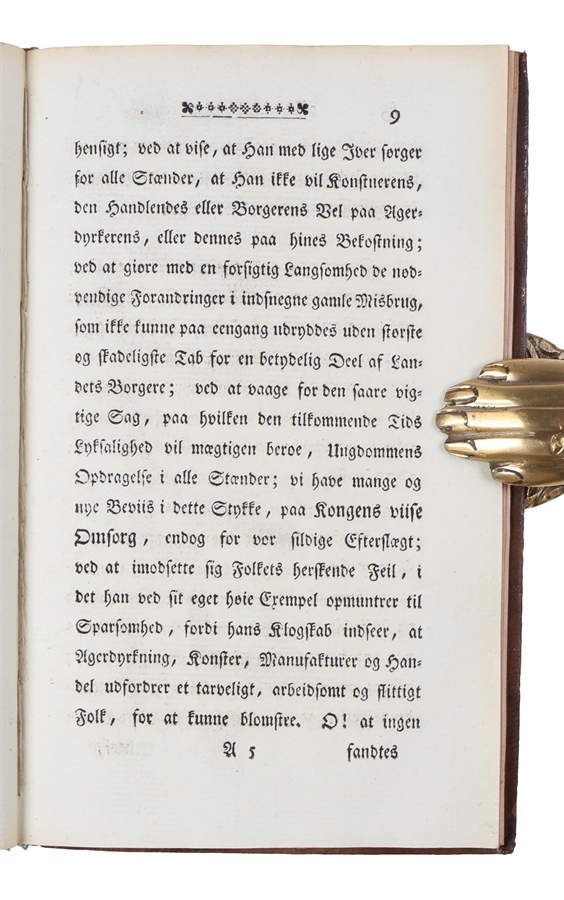 9
hensigt; ved at vise, at Han med lige Iver sørger
før alle Stænder, at Han ikke vil Konstnerens,
den Handlendes eller Borgerens Vel paa Ager-
dyrkerens, eller dennes paa hines Bekostning;
ved at giøre med en forsigtig Langsomhed de nød-
vendige Forandringer i indsnegne gamle Misbrug,
som ikke kunne paa eengang udryddes uden største
og skadeligste Tab for en betydelig Deel af Lan-
dets Borgere; ved at vaage for den saare vig-
tige Sag, paa hvilken den tilkommende Tids
Lyksalighed vil mægtigen beroe, Ungdommens
Opdragelse i alle Stænder; vi have mange og
nye Beviis i dette Stykke, paa Kongens viise
Omsorg, endog for vor sildige Efterslægt;
ved at imodsette sig Folkets herskende Feil, i
det han ved sit eget høie Exempel opmuntrer til
Sparsomhed, fordi hans Klogskab indseer, at
Agerdyrkning, Konster, Manufakturer og Han-
del udfordrer et tarveligt, arbeidsomt og flittigt
Folk, for at kunne blomstre. O! at ingen
A 5 fandtes